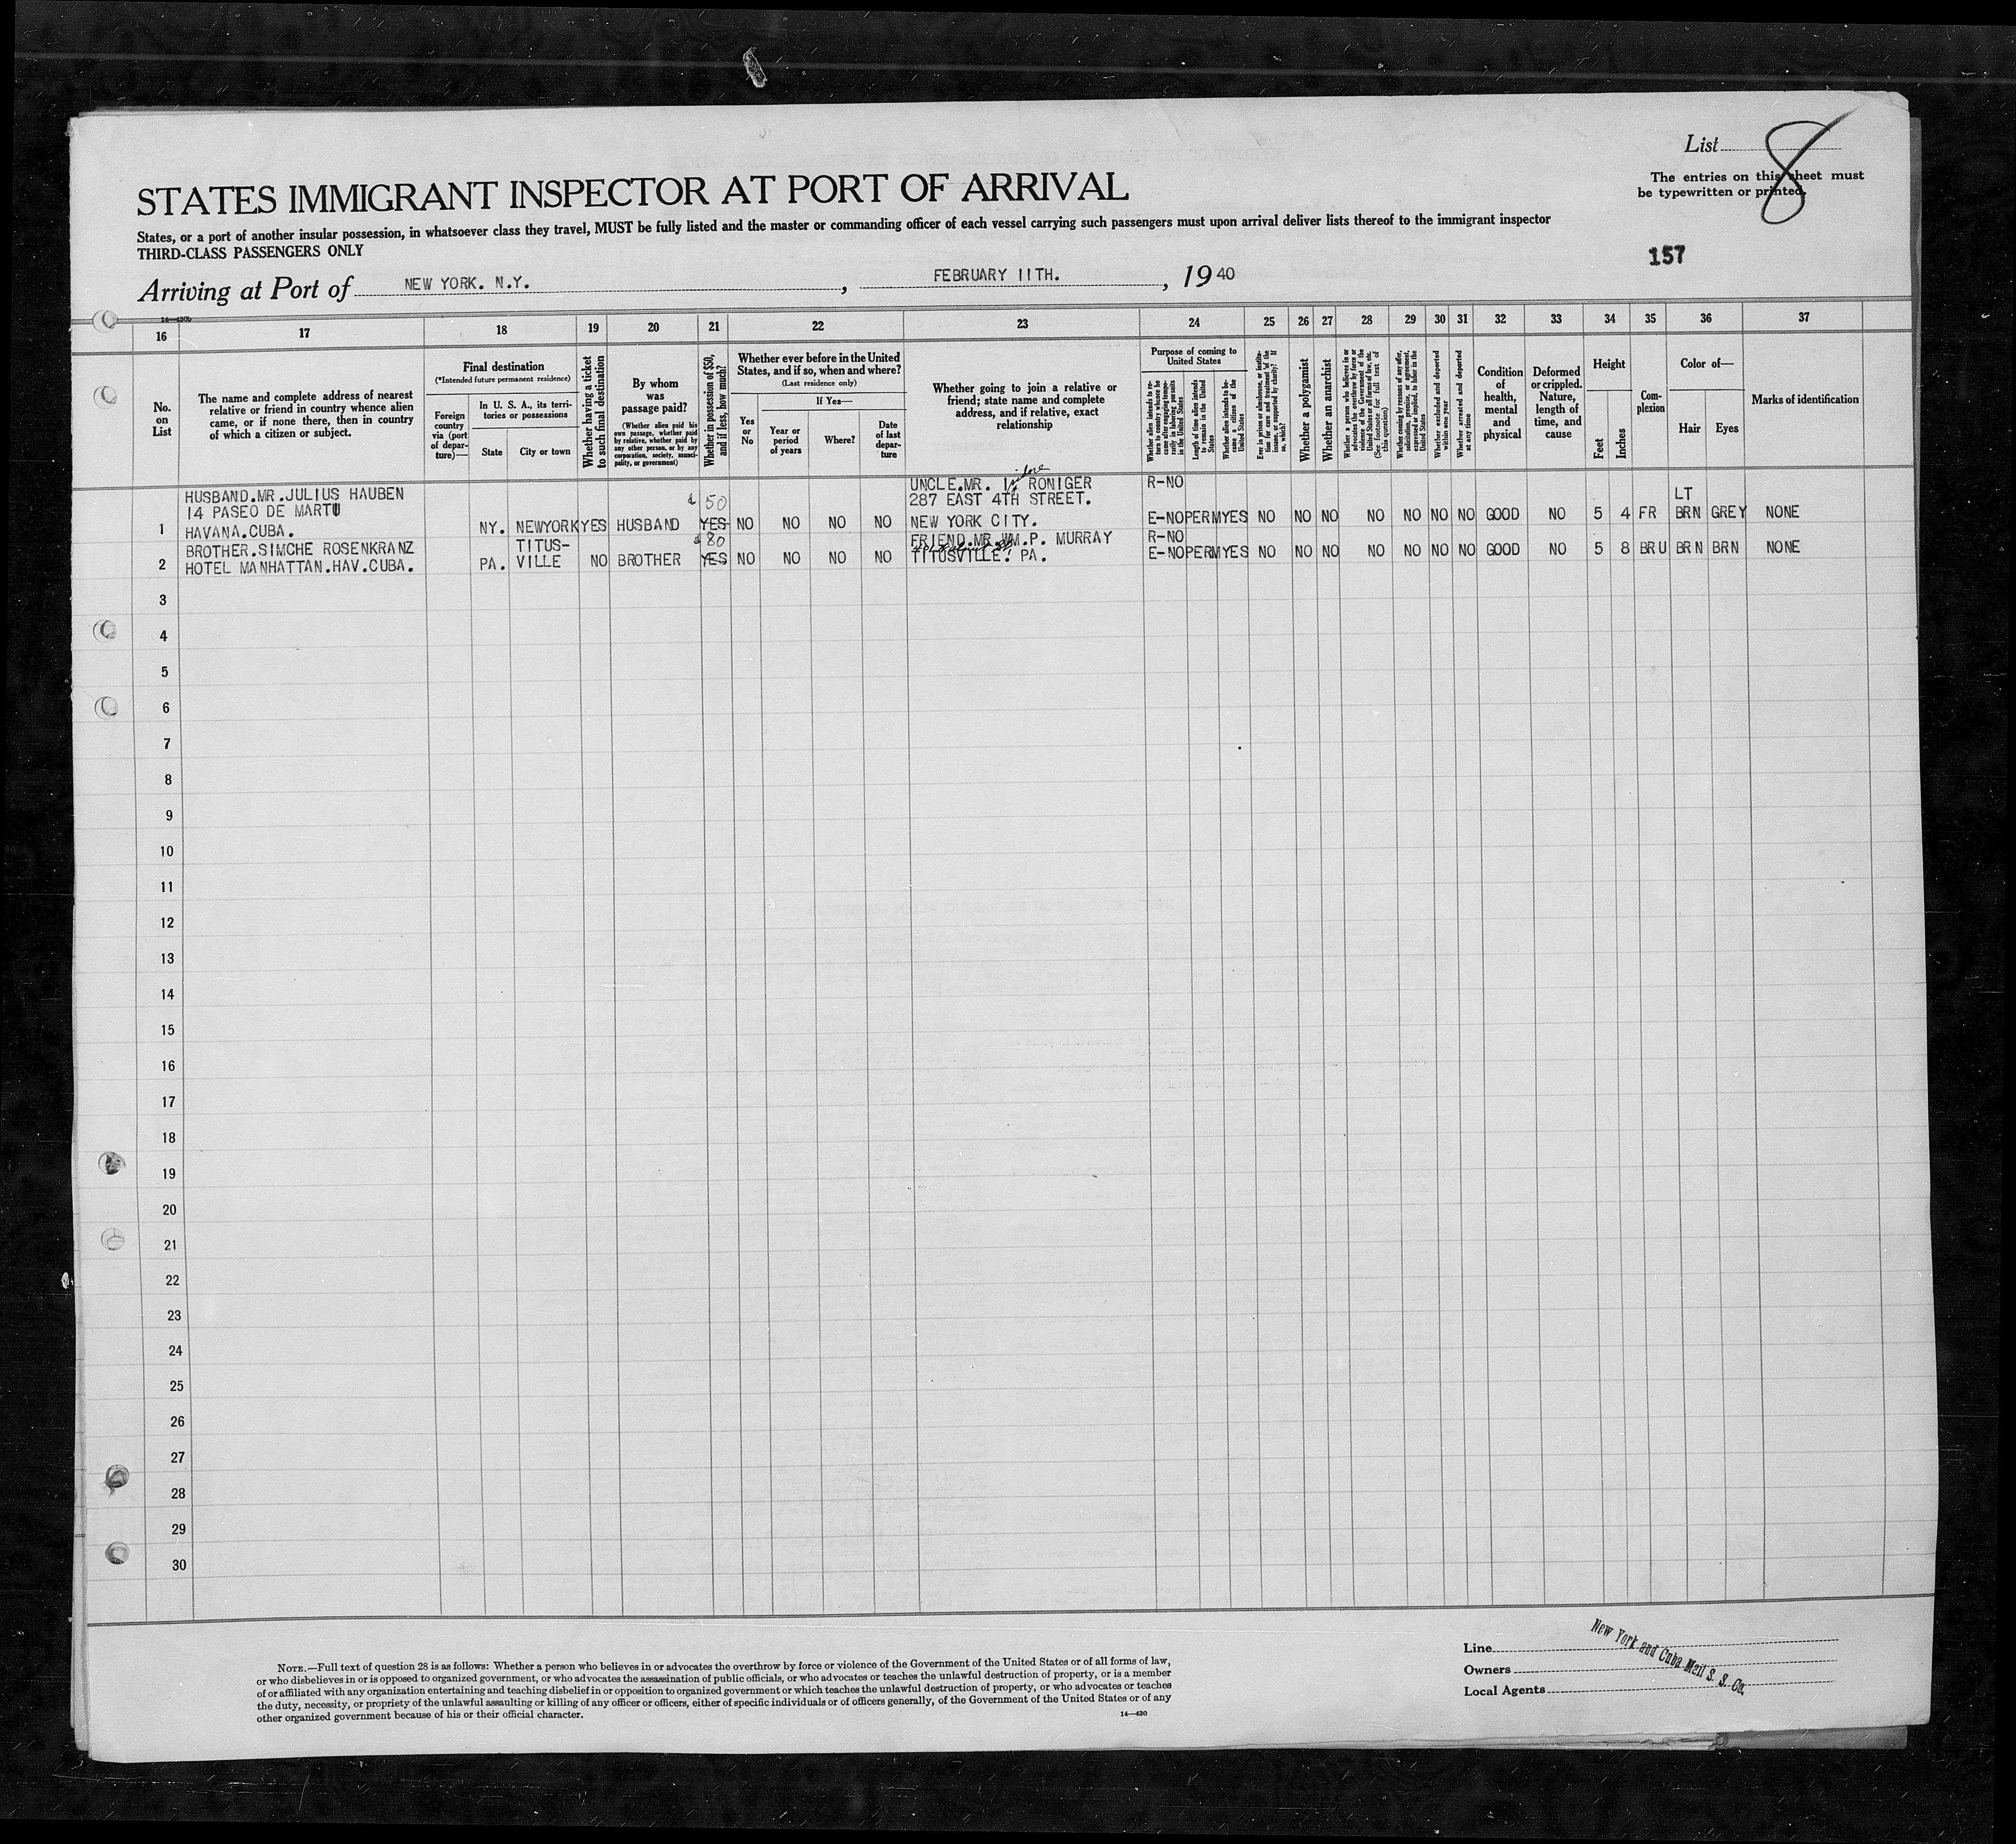 List 8
The entries on this sheet must
be typewritten or printed.
STATES IMMIGRANT INSPECTOR AT PORT OF ARRIVAL
States, or a port of another insular possession, in whatsoever class they travel, MUST be fully listed and the master or commanding officer of each vessel carrying such passengers must upon arrival deliver lists thereof to the immigrant inspector
THIRD-CLASS PASSENGERS ONLY
157
Arriving at Port of NEW YORK. N.Y. , FEBRUARY 11TH. , 19 40
14—430b
16 17 18 19 20 21 22 23 24 25 26 27 28 29 30 31 32 33 34 35 36 37
No.
on
List
The name and complete address of nearest
relative or friend in country whence alien
came, or if none there, then in country
of which a citizen or subject.
Final destination
(*Intended future permanent residence)
Foreign
country
via (port
of depar-
ture)—
In U. S. A., its terri-
tories or possessions
State
City or town
Whether having a ticket
to such final destination
By whom
was
passage paid?
(Whether alien paid his
own passage, whether paid
by relative, whether paid by
any other person, or by any
corporation, society, munici-
pality, or government)
Whether in possession of $50,
and if less, how much?
Whether ever before in the United
States, and if so, when and where?
(Last residence only)
Yes
or
No
If Yes—
Year or
period
of years
Where?
Date
of last
depar-
ture
Whether going to join a relative or
friend; state name and complete
address, and if relative, exact
relationship
Purpose of coming to
United States
Whether alien intends to re-
turn to country whence he
came after engaging tempo-
rarily in laboring pursuits
in the United States
Length of time alien intends
to remain in the United
States
Whether alien intends to be-
come a citizen of the
United States
Ever in prison or almshouse, or institu-
tion for care and treatment of the
insane, or supported by charity? If
so, which?
Whether a polygamist
Whether an anarchist
Whether a person who believes in or
advocates the overthrow by force or
violence of the Government of the
United States or all forms of law, etc.
(See footnote for full text of
this question)
Whether coming by reasons of any offer,
solicitation, promise, or agreement,
expressed or implied, to labor in the
United States
Whether excluded and deported
within one year
Whether arrested and deported
at any time
Condition
of
health,
mental
and
physical
Deformed
or crippled.
Nature,
length of
time, and
cause
Height
Feet
Inches
Com-
plexion
Color of—
Hair
Eyes
Marks of identification
HUSBAND.MR.JULIUS HAUBEN UNCLE.MR. RONIGER R-NO LT
14 PASEO DE MARTU 50 287 EAST 4TH STREET.
1 HAVANA.CUBA. NY. NEWYORK YES HUSBAND YES NO NO NO NO NEW YORK CITY. E-NO PERM YES NO NO NO NO NO NO NO GOOD NO 5 4 FR BRN GREY NONE
BROTHER.SIMCHE ROSENKRANZ TITUS- $80 FRIEND.MR.WM.P. MURRAY R-NO
2 HOTEL MANHATTAN.HAV.CUBA. PA. VILLE NO BROTHER YES NO NO NO NO TITUSVILLE. PA. E-NO PERM YES NO NO NO NO NO NO NO GOOD NO 5 8 BRU BRN BRN NONE
3
4
5
6
7
8
9
10
11
12
13
14
15
16
17
18
19
20
21
22
23
24
25
26
27
28
29
30
NOTE.—Full text of question 28 is as follows: Whether a person who believes in or advocates the overthrow by force or violence of the Government of the United States or of all forms of law,
or who disbelieves in or is opposed to organized government, or who advocates the assassination of public officials, or who advocates or teaches the unlawful destruction of property, or is a member
of or affiliated with any organization entertaining and teaching disbelief in or opposition to organized government or which teaches the unlawful destruction of property, or who advocates or teaches
the duty, necessity, or propriety of the unlawful assaulting or killing of any officer or officers, either of specific individuals or of officers generally, of the Government of the United States or of any
other organized government because of his or their official character.
14—430
Line
Owners
Local Agents
New York and Cuba Mail S. S. Co.